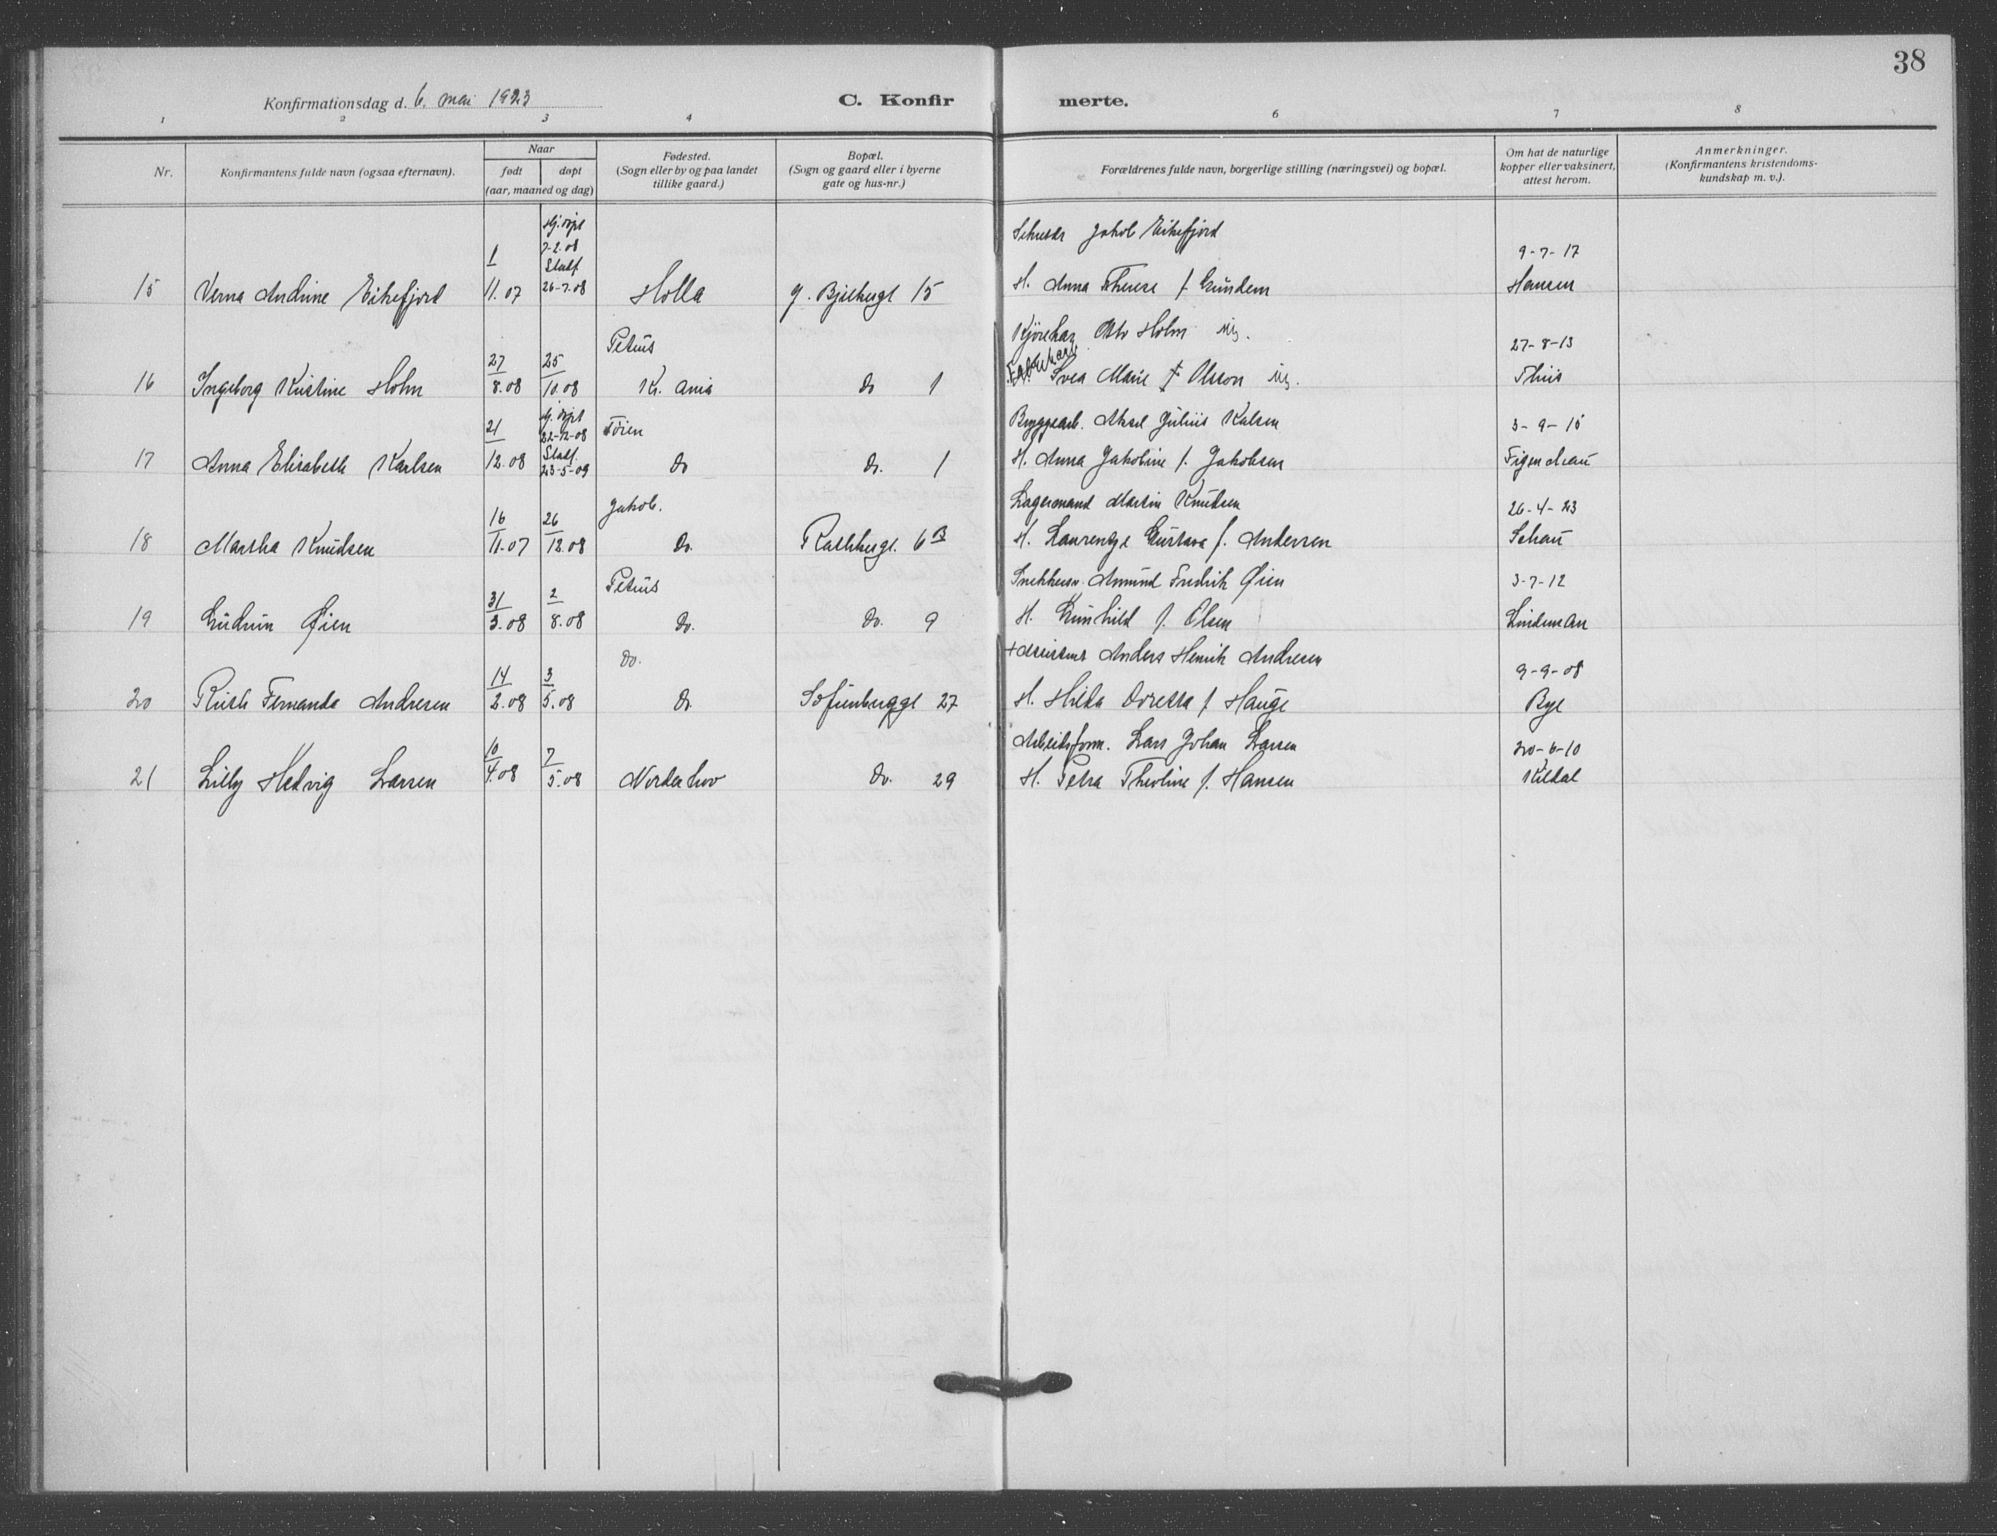 38
Konfirmationsdag d. 6. mai 1923
C. Konfirmerte.
1 2 3 4 6 7 8
Nr.
Konfirmantens fulde navn (ogsaa efternavn).
Naar
født døpt
(aar, maaned og dag)
Fødested.
(Sogn eller by og paa landet
tillike gaard.)
Bopæl.
(Sogn og gaard eller i byerne
gate og hus-nr.)
Forældrenes fulde navn, borgerlige stilling (næringsvei) og bopæl.
Om hat de naturlige
kopper eller vaksinert,
attest herom.
Anmerkninger.
(Konfirmantens kristendoms-
kundskap m. v.).
hj. døpt
7-2.08 Jakob Eikefjord
1 Stadf. 9-7-17
15 Verna Andrine Eikefjord 11.07 26-7.08 Holla g. Bjerkergt 15 H. Anna Therese f. Gundem Hansen
Petrus Kjørekar Otto Holm
27 25 27-8-13
16 Ingeborg Kristine Holm 8.08 10.08 Kr.ania do 1 Svea Marie f. Olsson Thiis
21 hj. døpt 22-12-08 Tøien Bryggearb. Aksel Julius Karlsen 3-9-15
17 Anna Elisabeth Karlsen 12.08 Stadf. 23-5-09 do do. 1 H. Anna Jakobine f. Jakobsen Figenschau
Jakob. Lagermand Martin Knudsen
16 26 26-4-23
18 Martha Knudsen 11.07 12.08 do. Rathkesgt. 6 B H. Laurentze Gustava f. Andersen Schau
Petrus Snekkersv. Amund Fredrik Øien
31 2 3-7-12
19 Gudrun Øien 3.08 8.08 do. do. 9 H. Gunhild f. Olsen Lindeman
do. Anders Henrik Andresen
14 3 9-9-08
20 Ruth Fernanda Andresen 2.08 5.08 do Sofienberggt 27 H. Hilda Doretta f. Hauge Bye
Arbeidsform. Lars Johan Larsen
10 7 20-6-10
21 Lilly Hedvig Larsen 4.08 5.08 Norderhov do. 29 H. Petra Theoline f. Hansen Kildal